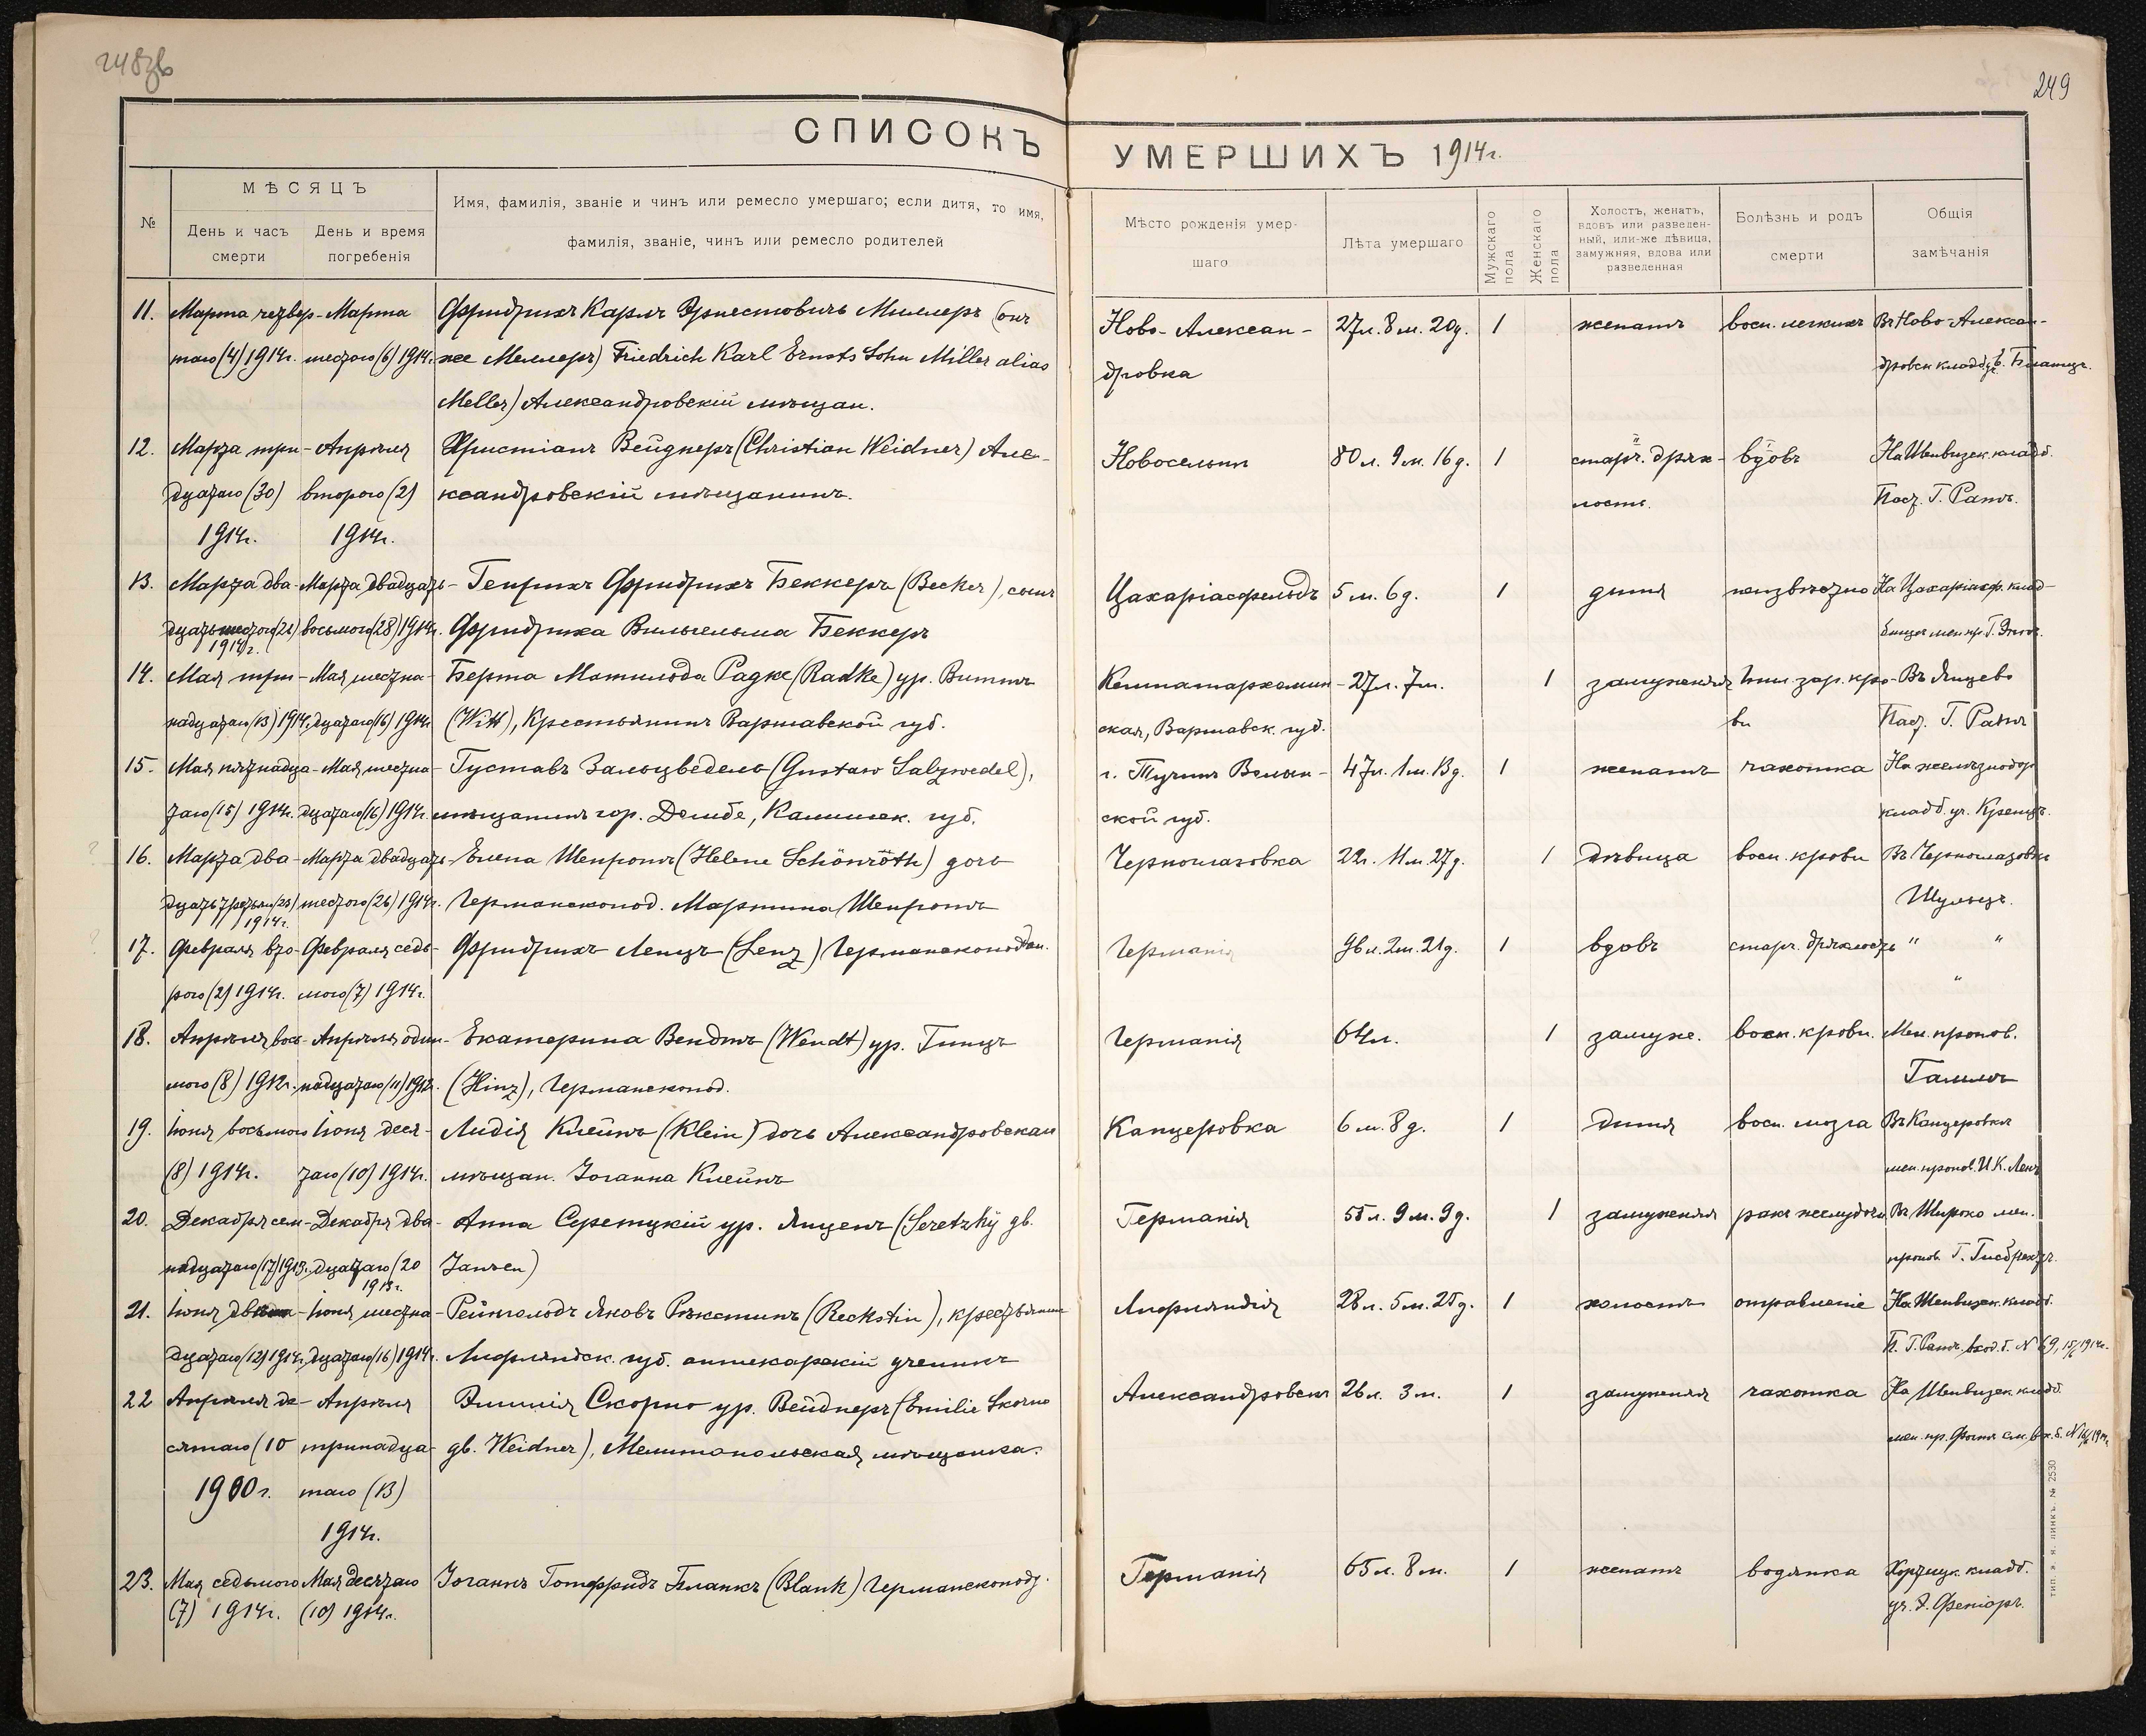 248зв
249
СПИСОКЪ УМЕРШИХЪ 1914г.
№
МѢСЯЦЪ
День и часъ смерти
День и время погребенія
Имя, фамилія, званіе и чинъ или ремесло умершаго; если дитя, то имя,
фамилія, званіе, чинъ или ремесло родителей
Мѣсто рожденія умер-
шаго
Лѣта умершаго
Мужскаго пола
Женскаго пола
Холостъ, женатъ,
вдовъ или разведен-
ный, или-же дѣвица,
замужняя, вдова или
разведенная
Болѣзнь и родъ
смерти
Общія
замѣчанія
11. Марта четвер- Марта Фридрихъ Карлъ Эрнестовичъ Миллеръ (онъ Ново-Алексан- 27л. 8м. 20д. 1 женатъ восп. легкихъ Въ Ново-Алексан-
таго (4) 1914г. шестого (6) 1914г. же Меллеръ) Friedrich Karl Ernsts Sohn Miller alias дровка
Meller) Александровскій мѣщан.
12. Марта три- Апрѣля Христіанъ Вейднеръ (Christian Weidner) Але- Новосельки 80л. 9м. 16д. 1 старч. дрях- вдовъ На Шенвизек. кладб.
дцатаго (30) второго (2) ксандровскій мѣщанинъ. лость. Паст. Г. Ратъ.
1914г. 1914г.
13. Марта два- Марта двадцать- Генрихъ Фридрихъ Беккеръ (Becker), сынъ Цахаріасфельдъ 5м. 6д. 1 дитя неизвѣстно На Цахаріасф. клад-
дцать шестого (26) восьмого (28) 1914г. Фридриха Вильгельма Беккеръ
1914г.
14. Мая три- Мая шестна- Берта Матильда Радке (Radke) ур. Виттъ 27л. 7м. 1 замужняя зар. кро- Въ Яицево
надцатаго (13) 1914г. дцатаго (16) 1914г. (Witt), Крестьянинъ Варшавской губ. ская, Варшавск. губ. ви Паст. Г. Ратъ
15. Мая пятнадца- Мая шестна- Густавъ Зальцведель (Gustaw Salzwedel), г. Тучинъ Волын- 47л. 1м. 13д. 1 женатъ чахотка На желѣзнодор
таго (15) 1914г. дцатаго (16) 1914г. мѣщанинъ гор. Дембе, Калишск. губ. ской губ. кладб. уч.
16. Марта два- Марта двадцать- Елена Шенротъ (Helene Schönröth) дочь Черноглазовка 22г. 11м. 27д. 1 дѣвица восп. крови Въ Черноглазовкѣ
дцать третьяго (23) шестого (26) 1914г. Германсконод. Мартина Шенротъ Шульцъ.
1914г.
17. Февраля вто- Февраля седь- Фридрихъ Ленцъ (Lenz) Германскоподдан. Германія 96л. 2м. 21д. 1 вдовъ старч. дряхлость " "
рого (2) 1914г. мого (7) 1914г. "
18. Апрѣля вось- Апрѣля один- Екатерина Вендтъ (Wendt) ур. Гинцъ Германія 64л. 1 замуж. восп. крови. Мен. пропов.
мого (8) 1912г. надцатаго (11) 1912г. (Hinz), Германскопод.
19. Іюня восьмого Іюня деся- Лидія Клейнъ (Klein) дочь Александровскаи Канцеровка 6м. 8д. 1 дитя восп. мозга Въ Канцеровкѣ
(8) 1914г. таго (10) 1914г. мѣщан. Іоганна Клейнъ мен. пропов. И.К.
20. Декабря сем- Декабря два- Анна Серетцкій ур. Янценъ (Seretzky gb. Германія 55л. 9м. 9д. 1 замужняя ракъ желудка Въ Широко мен.
надцатаго (17) 1913г. дцатаго (20 Janzen) пропов. Г. Гисбрехтъ.
1913г.
21. Іюня Іюня шестна- Рейнгольдъ Яковъ Рѣкстинъ (Reckstin), крестьянинъ Лифляндія 28л. 5м. 25д. 1 холостъ отравленіе На Шенвизек. кладб.
дцатаго (12) 1914г. дцатаго (16) 1914г. Лифляндск. губ. аптекарскій ученикъ П. Г. Ратъ. вход. б. № 69, 15/ 1914г.
22 Апрѣля де- Апрѣля Эмилія Скорно ур. Вейднеръ (Emilie Skorno Александровскъ 26л. 3м. 1 замужняя чахотка На Шенвизек. кладб.
сятаго (10 тринадца- gb. Weidner), Мелитопольская мѣщанка.
1900г. таго (13)
1914г.
23. Мая седьмого Мая десятаго Іоганнъ Готфридъ Бланкъ (Blank) Германсконодд. Германія 65л. 8м. 1 женатъ водянка Хортицк. кладб.
(7) 1914г. (10) 1914г.
тип. э. н. линкъ. № 2530